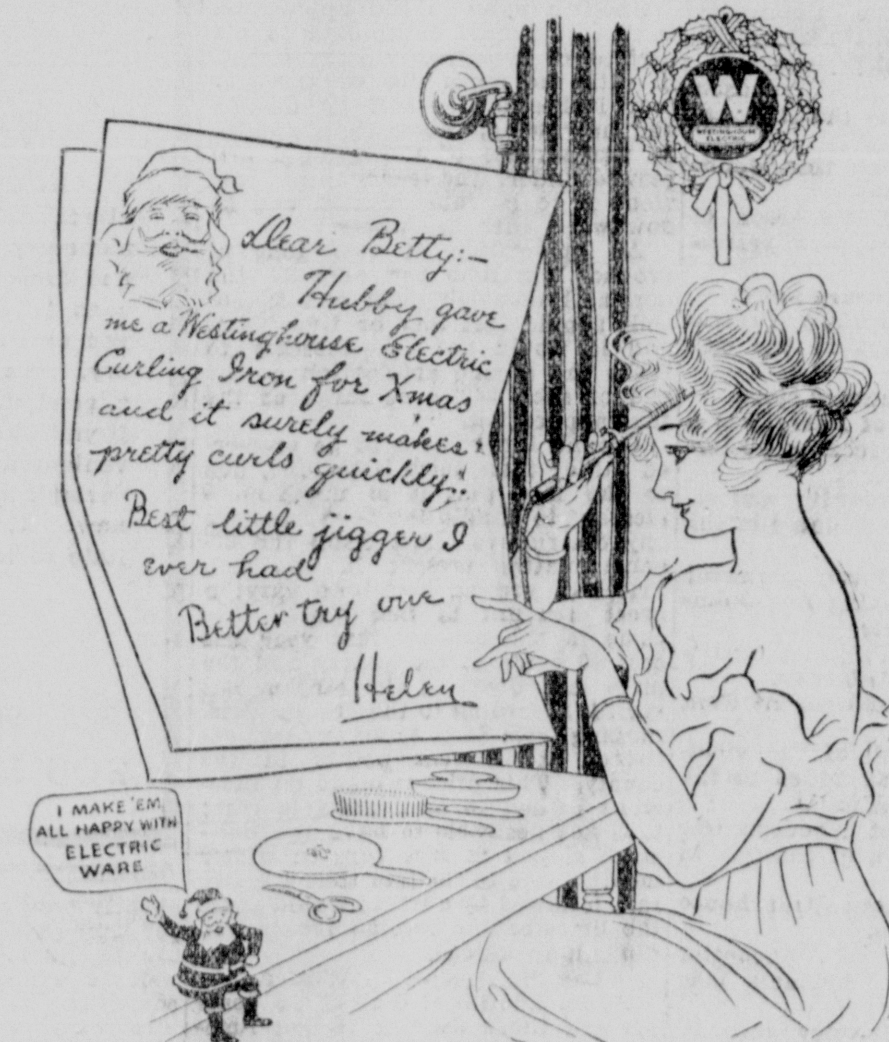 W
WESTINGHOUSE
ELECTRIC
Dear Betty:-
Hubby gave
me a Westinghouse Electric
Curling Iron for Xmas
and it surely makes
pretty curls quickly!!
Best little jigger I
ever had
Better try one
Helen
I MAKE 'EM
ALL HAPPY WITH
ELECTRIC
WARE